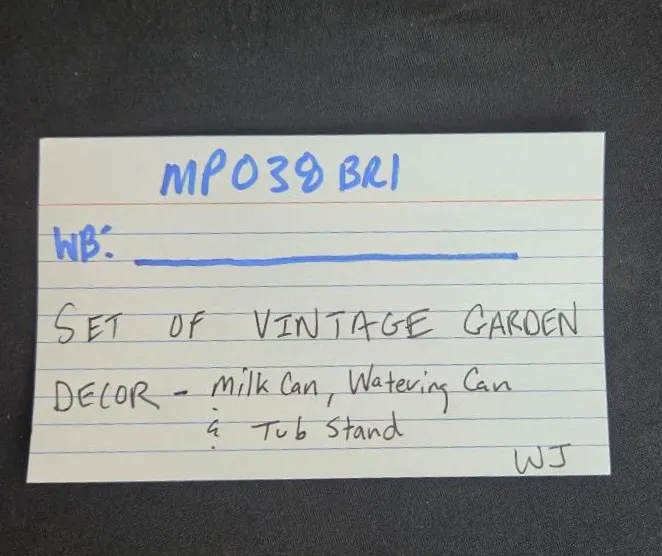 MP038 BRI
WB: ____________
SET OF VINTAGE GARDEN
DECOR - Milk Can, Watering Can
& Tub Stand
WJ